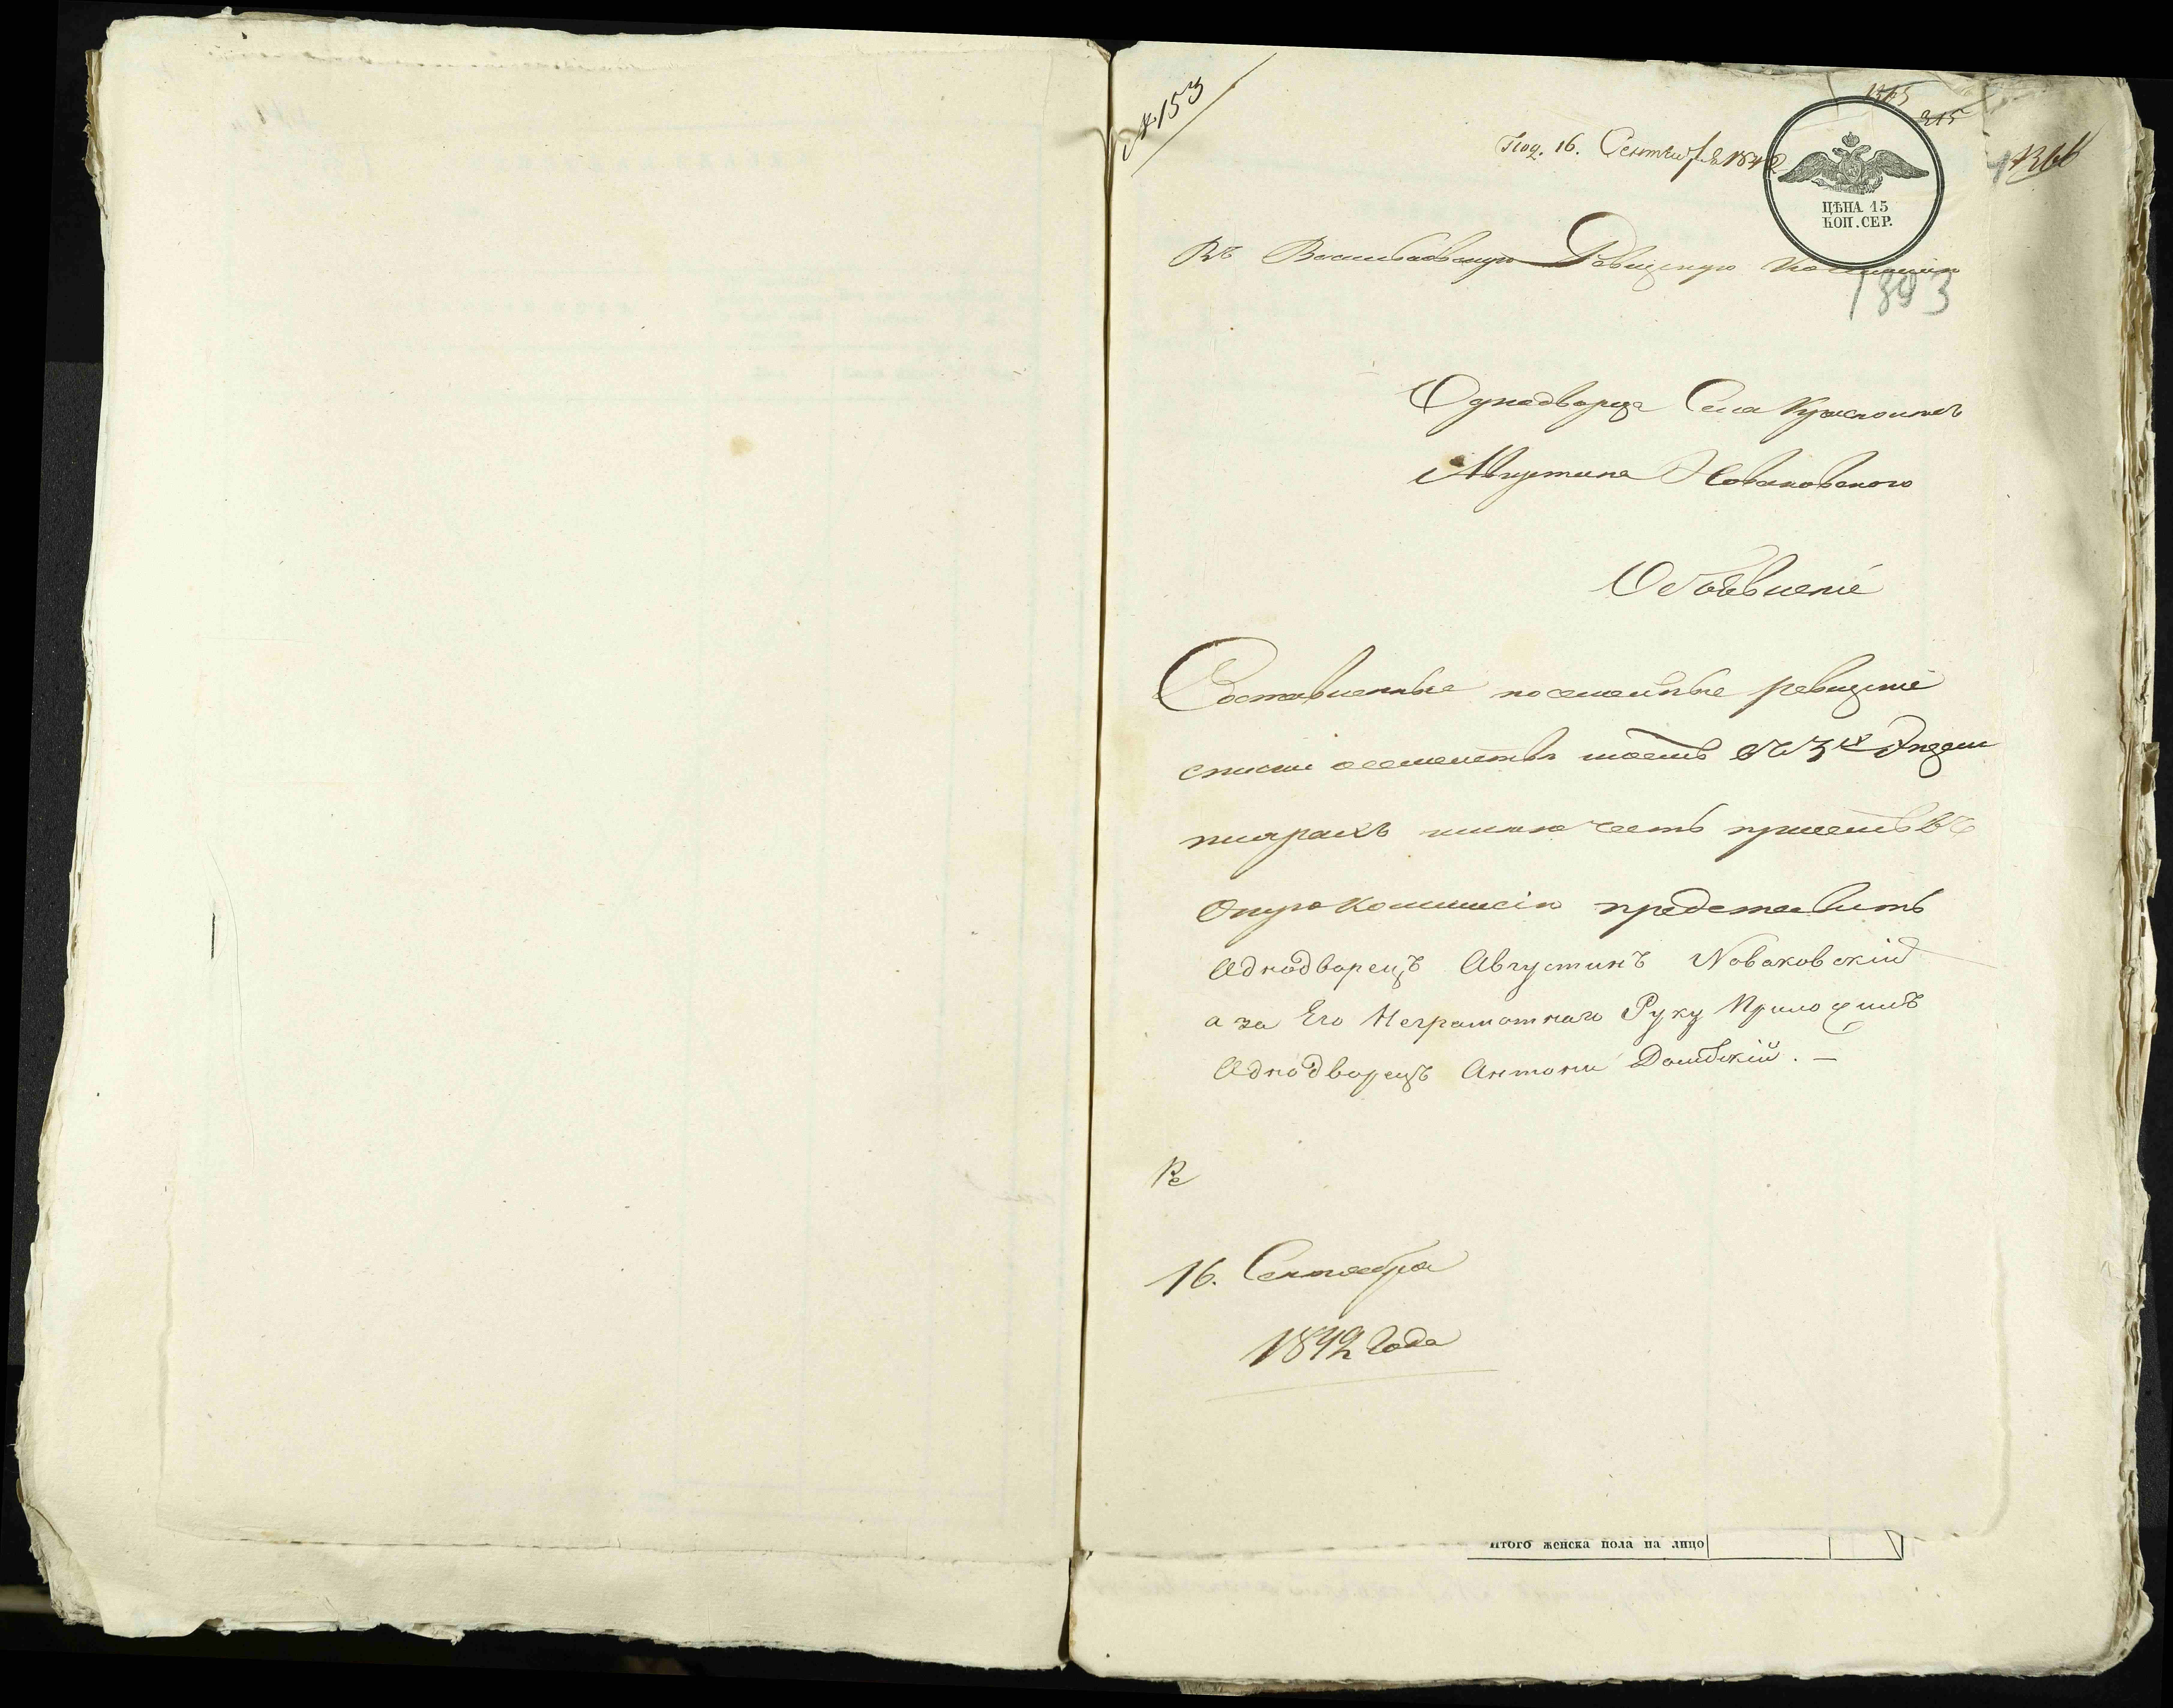 № 153
1365
215
Под. 16. Сентября 1842
1366
ЦѢНА 15
КОП. СЕР.
Въ Васильковскую Ревизскую Комисію
1893
Однодворца Села
Августина Новаковского
Объявленіе
Составленные посемейные ревизскіе
списки о семействѣ моемъ въ 3х Экзем
плярахъ имею честь при семъ въ
Оную Коммисію представить
Аднодворецъ Августинъ Новаковскій
а за Его Неграмотнаго Руку Приложилъ
Аднодворецъ Антони Домбскій. —
16. Сентября
1842 Года
Итого женска пола на лицо